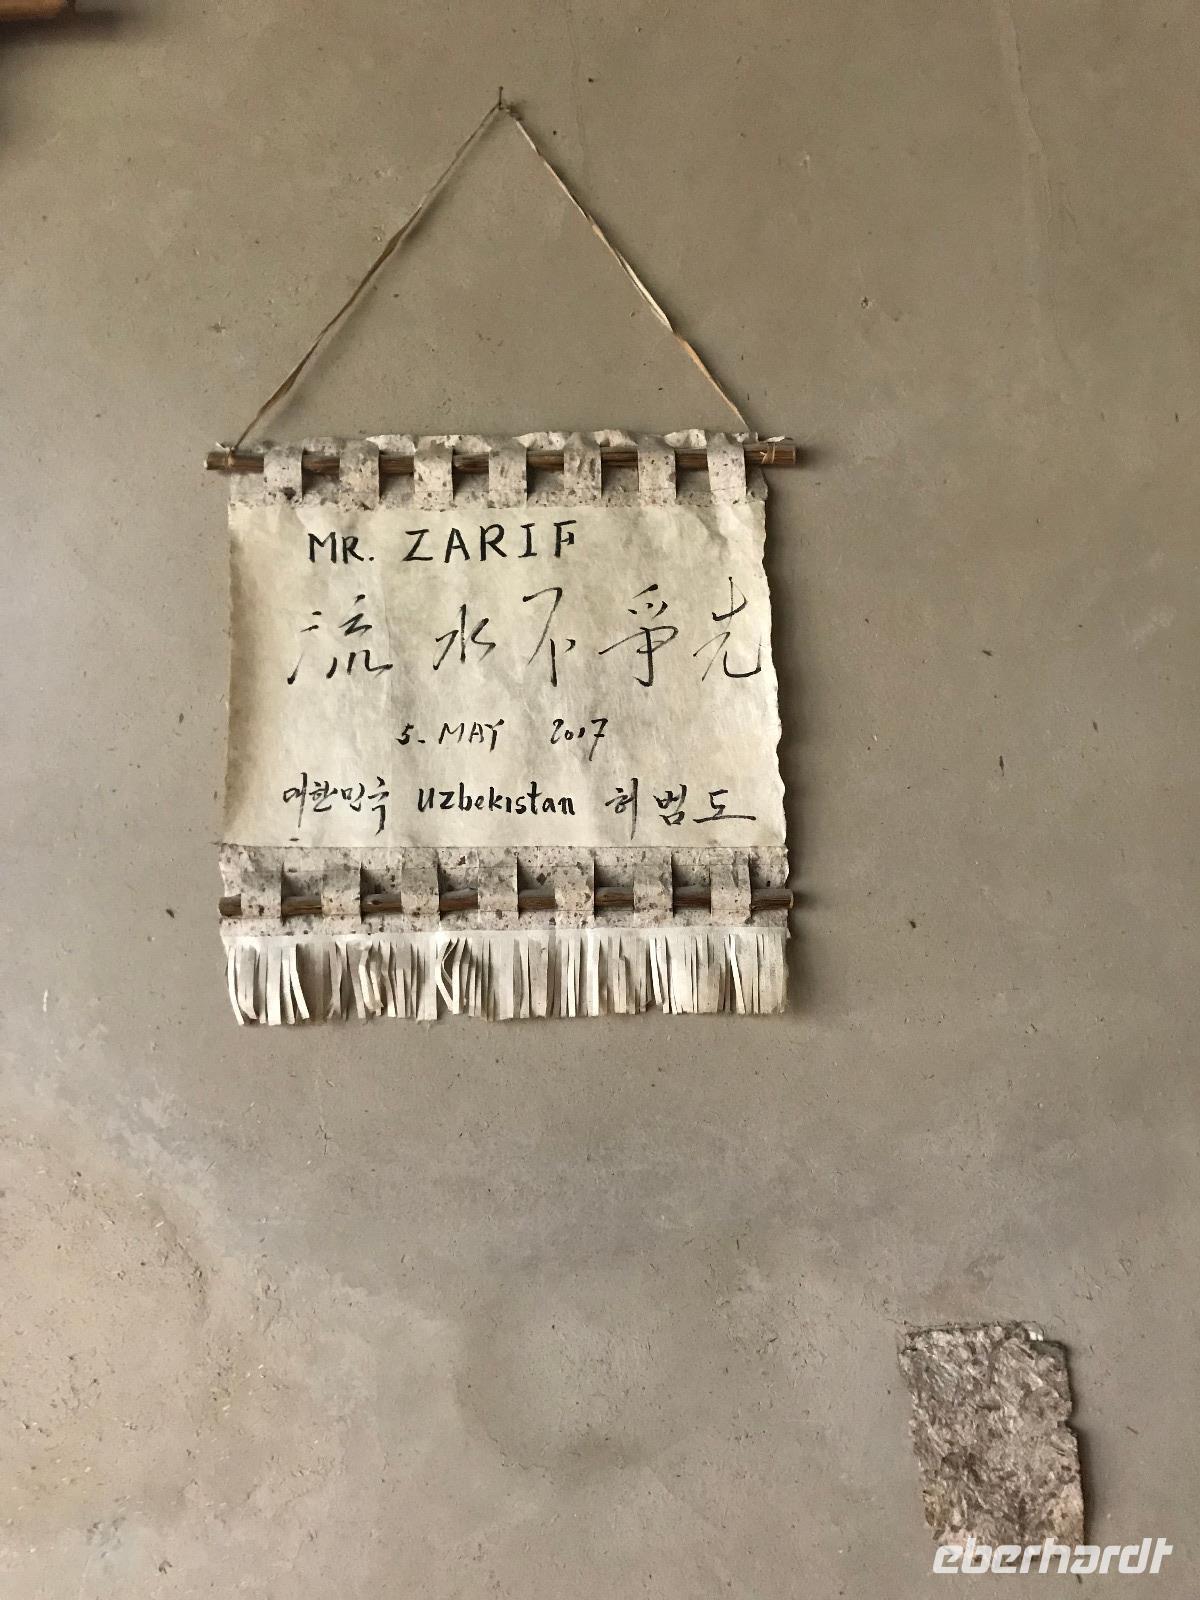 MR. ZARIF
流水不爭先
5. MAY 2017
대한민국 Uzbekistan 허범도
eberhardt